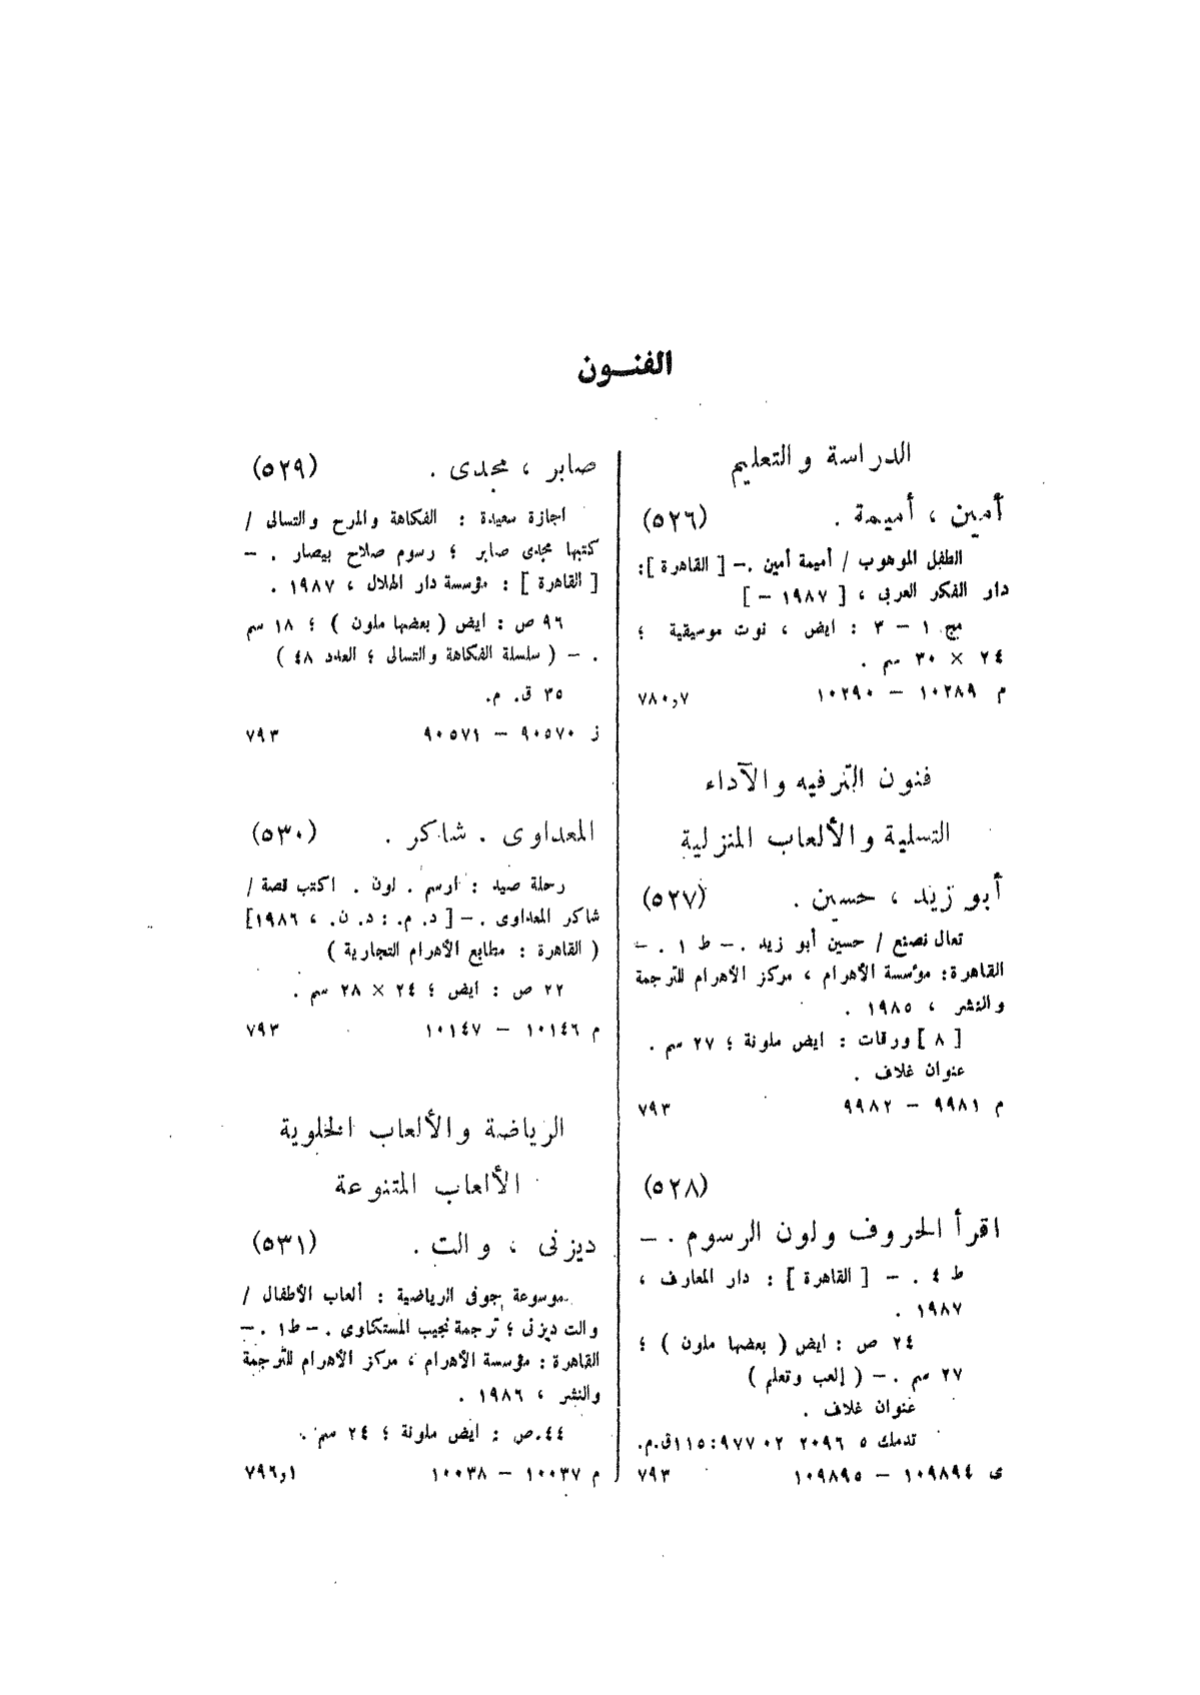 الفنــون
الدراسة والتعليم
أمين ، أميمة . (٥٢٦)
الطفل الموهوب / أميمة أمين .– [ القاهرة ]:
دار الفكر العربى ، [ ١٩٨٧ – ]
مج ١ – ٣ : ايض ، نوت موسيقية ؛
٢٤ × ٣٠ سم .
م ١٠٢٨٩ – ١٠٢٩٠ ٧٨٠,٧
فنون الترفيه والآداء
التسلية والألعاب المنزلية
أبو زيد ، حسين . (٥٢٧)
تعال نصنع / حسين أبو زيد .– ط ١ . –
القاهرة: مؤسسة الأهرام ، مركز الأهرام للترجمة
والنشر ، ١٩٨٥ .
[ ٨ ] ورقات : ايض ملونة ؛ ٢٧ سم .
عنوان غلاف .
م ٩٩٨١ – ٩٩٨٢ ٧٩٣
(٥٢٨)
اقرأ الحروف ولون الرسوم . –
ط ٤ . – [ القاهرة ] : دار المعارف ،
١٩٨٧ .
٢٤ ص : ايض ( بعضها ملون ) ؛
٢٧ سم .– ( إلعب وتعلم )
عنوان غلاف .
تدمك ٥ ٢٠٩٦ ٠٢ ٩٧٧ :١١٥ق.م.
ى ١٠٩٨٩٤ – ١٠٩٨٩٥ ٧٩٣
صابر ، مجدى . (٥٢٩)
اجازة سعيدة : الفكاهة والمرح والتسالى /
كتبها مجدى صابر ؛ رسوم صلاح بيصار . –
[ القاهرة ] : مؤسسة دار الهلال ، ١٩٨٧ .
٩٦ ص : ايض ( بعضها ملون ) ؛ ١٨ سم
. – ( سلسلة الفكاهة والتسالى ؛ العدد ٤٨ )
٣٥ ق. م.
ز ٩٠٥٧٠ – ٩٠٥٧١ ٧٩٣
المعداوى . شاكر . (٥٣٠)
رحلة صيد : ارسم . لون . اكتب قصة /
شاكر المعداوى .– [ د. م. : د. ن. ، ١٩٨٦]
( القاهرة : مطابع الأهرام التجارية )
٢٢ ص : ايض ؛ ٢٤ × ٢٨ سم .
م ١٠١٤٦ – ١٠١٤٧ ٧٩٣
الرياضة والألعاب الخلوية
الألعاب المتنوعة
ديزنى ، والت . (٥٣١)
موسوعة جوفى الرياضية : ألعاب الأطفال /
والت ديزنى ؛ ترجمة نجيب المستكاوى .– ط١ .–
القاهرة : مؤسسة الأهرام ، مركز الأهرام للترجمة
والنشر ، ١٩٨٦ .
٤٤ ص : ايض ملونة ؛ ٢٤ سم .
م ١٠٠٣٧ – ١٠٠٣٨ ٧٩٦,١